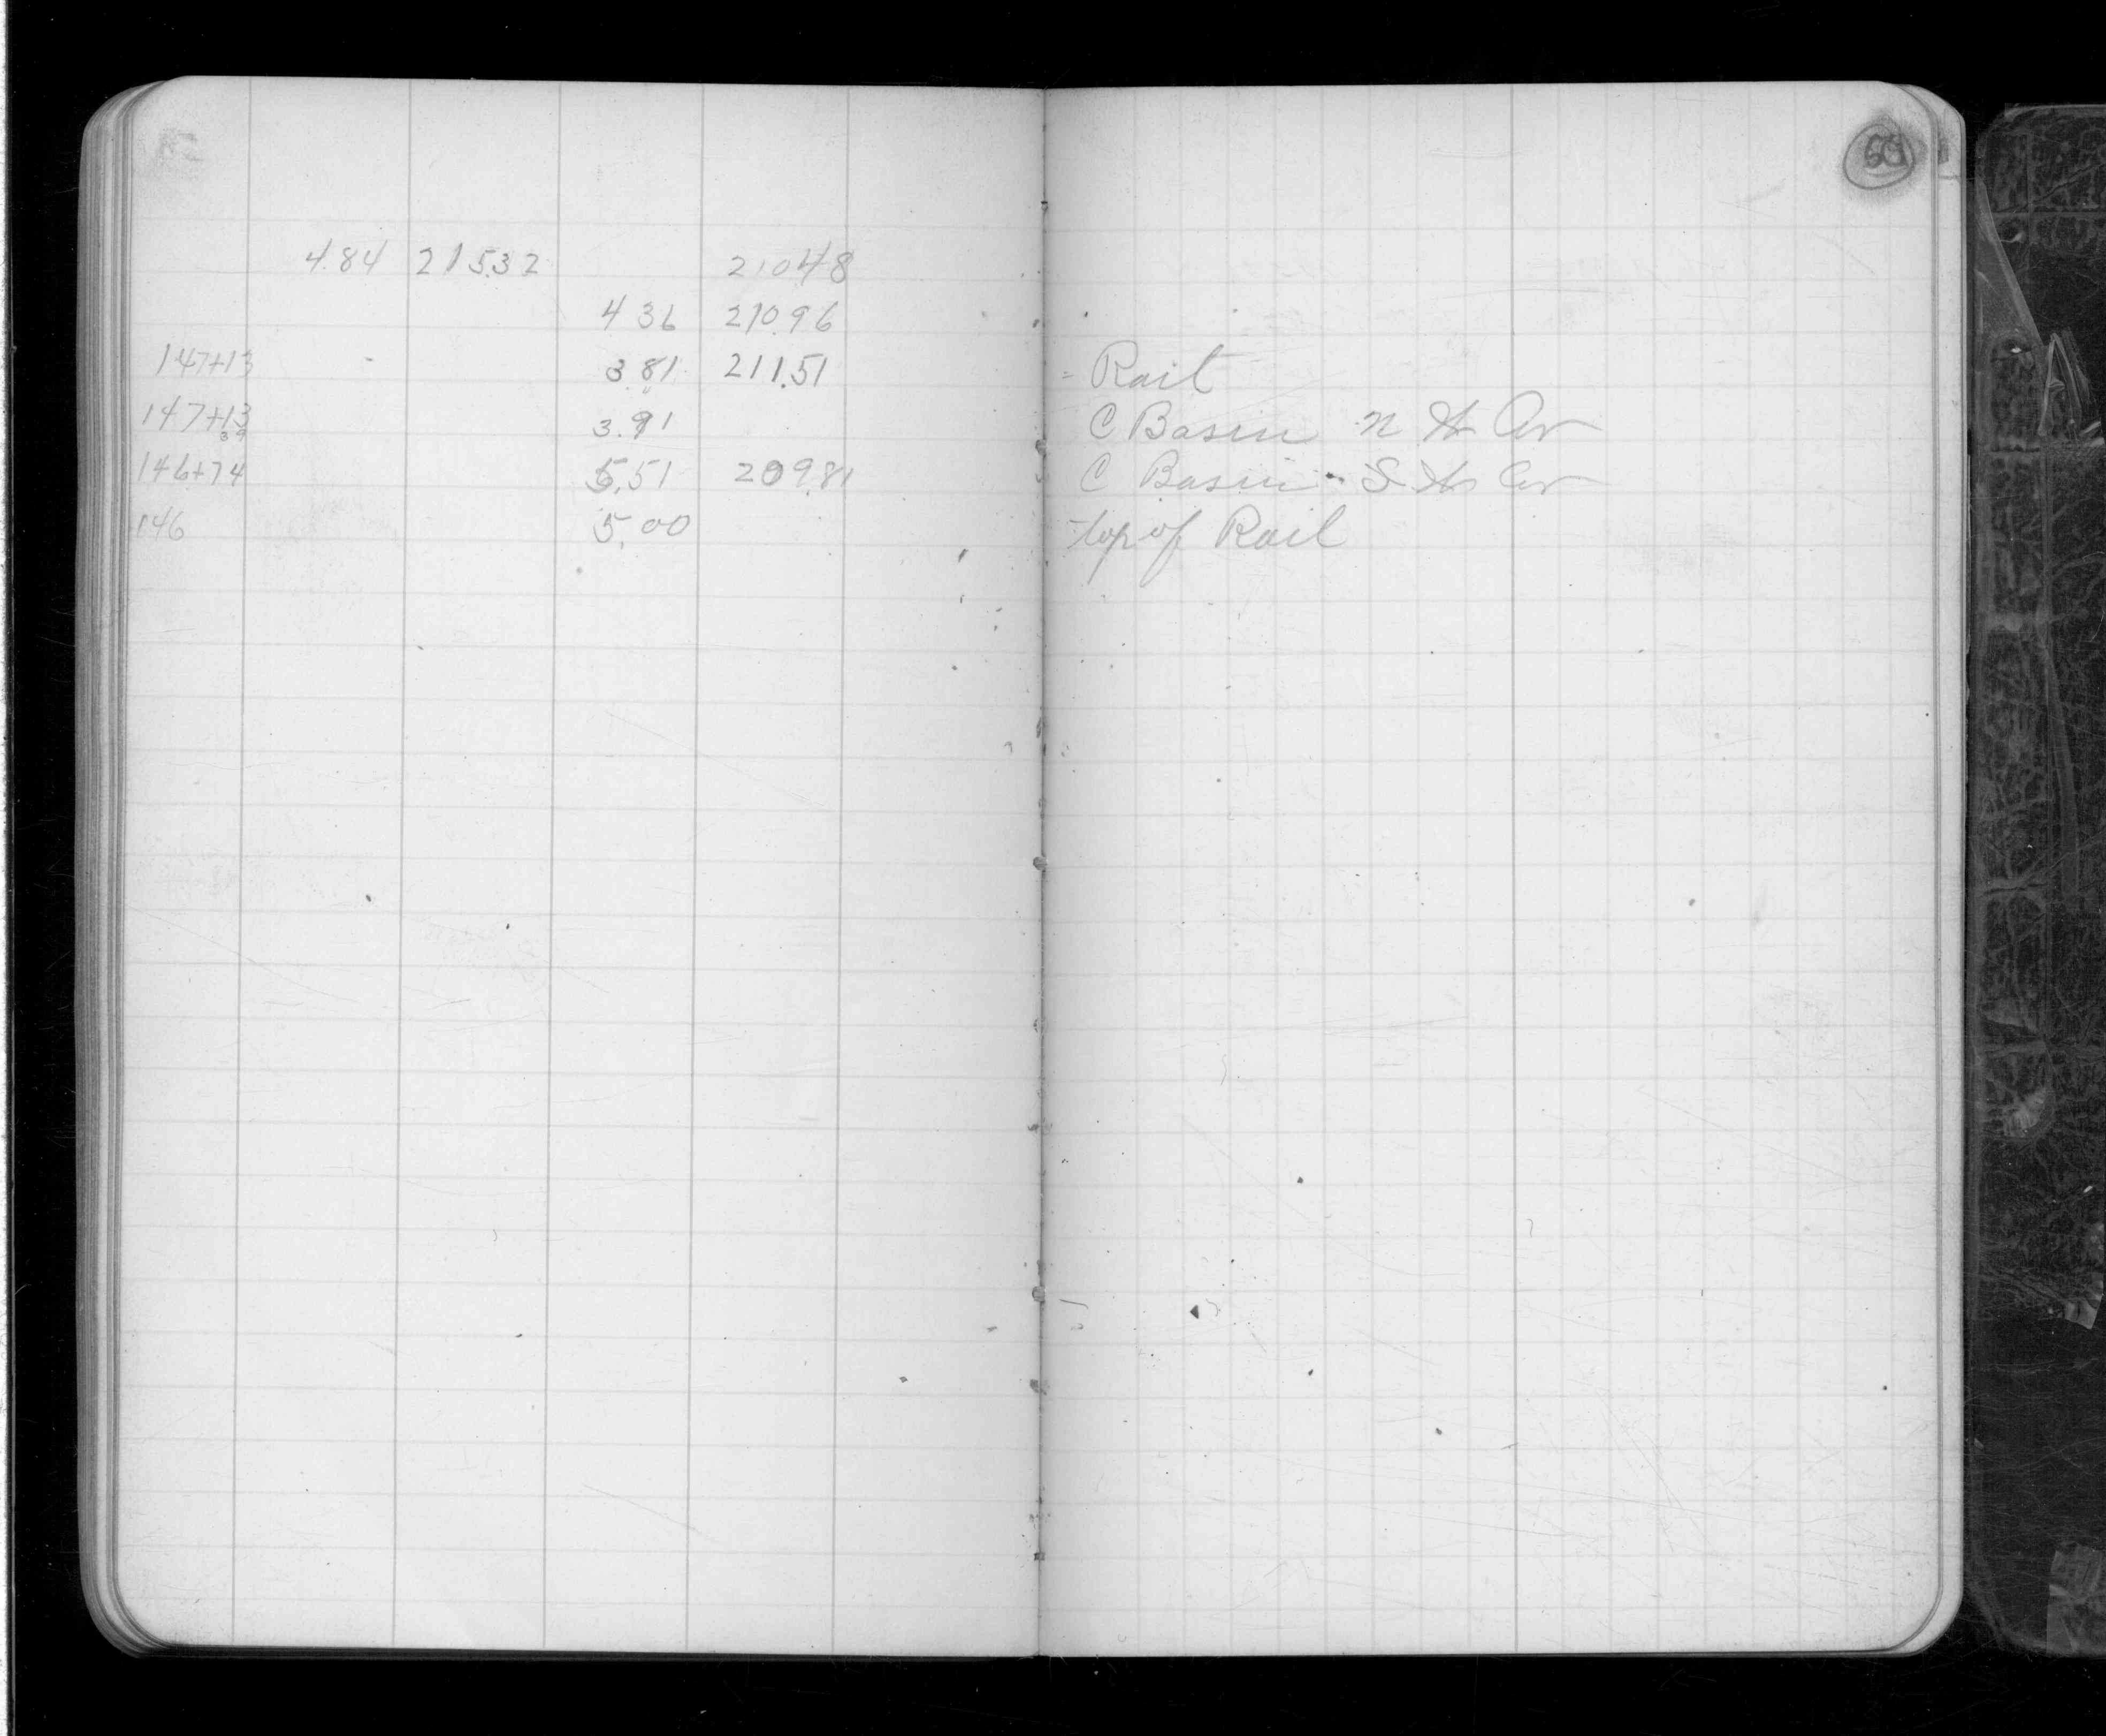 4.84 215.32 210.48
4 36 210.96
147+13 3.81 211.51 - Rail
147+13 3.91 C Basin N H Av
39
146+74 5.51 209.81 C Basin - S H Av
146 5.00 top of Rail